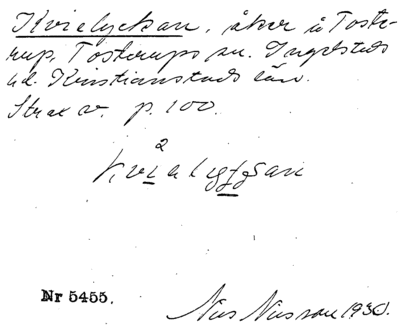 Kvielyckan, åker i Toste-
rup, Tosterups sn. Ingelstads
hd. Kristianstads län.
Strax v. p. 100.
Nr 5455.
Nils Nilsson 1930.